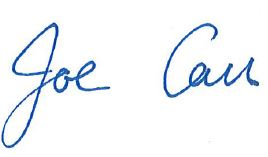 Joe Carr